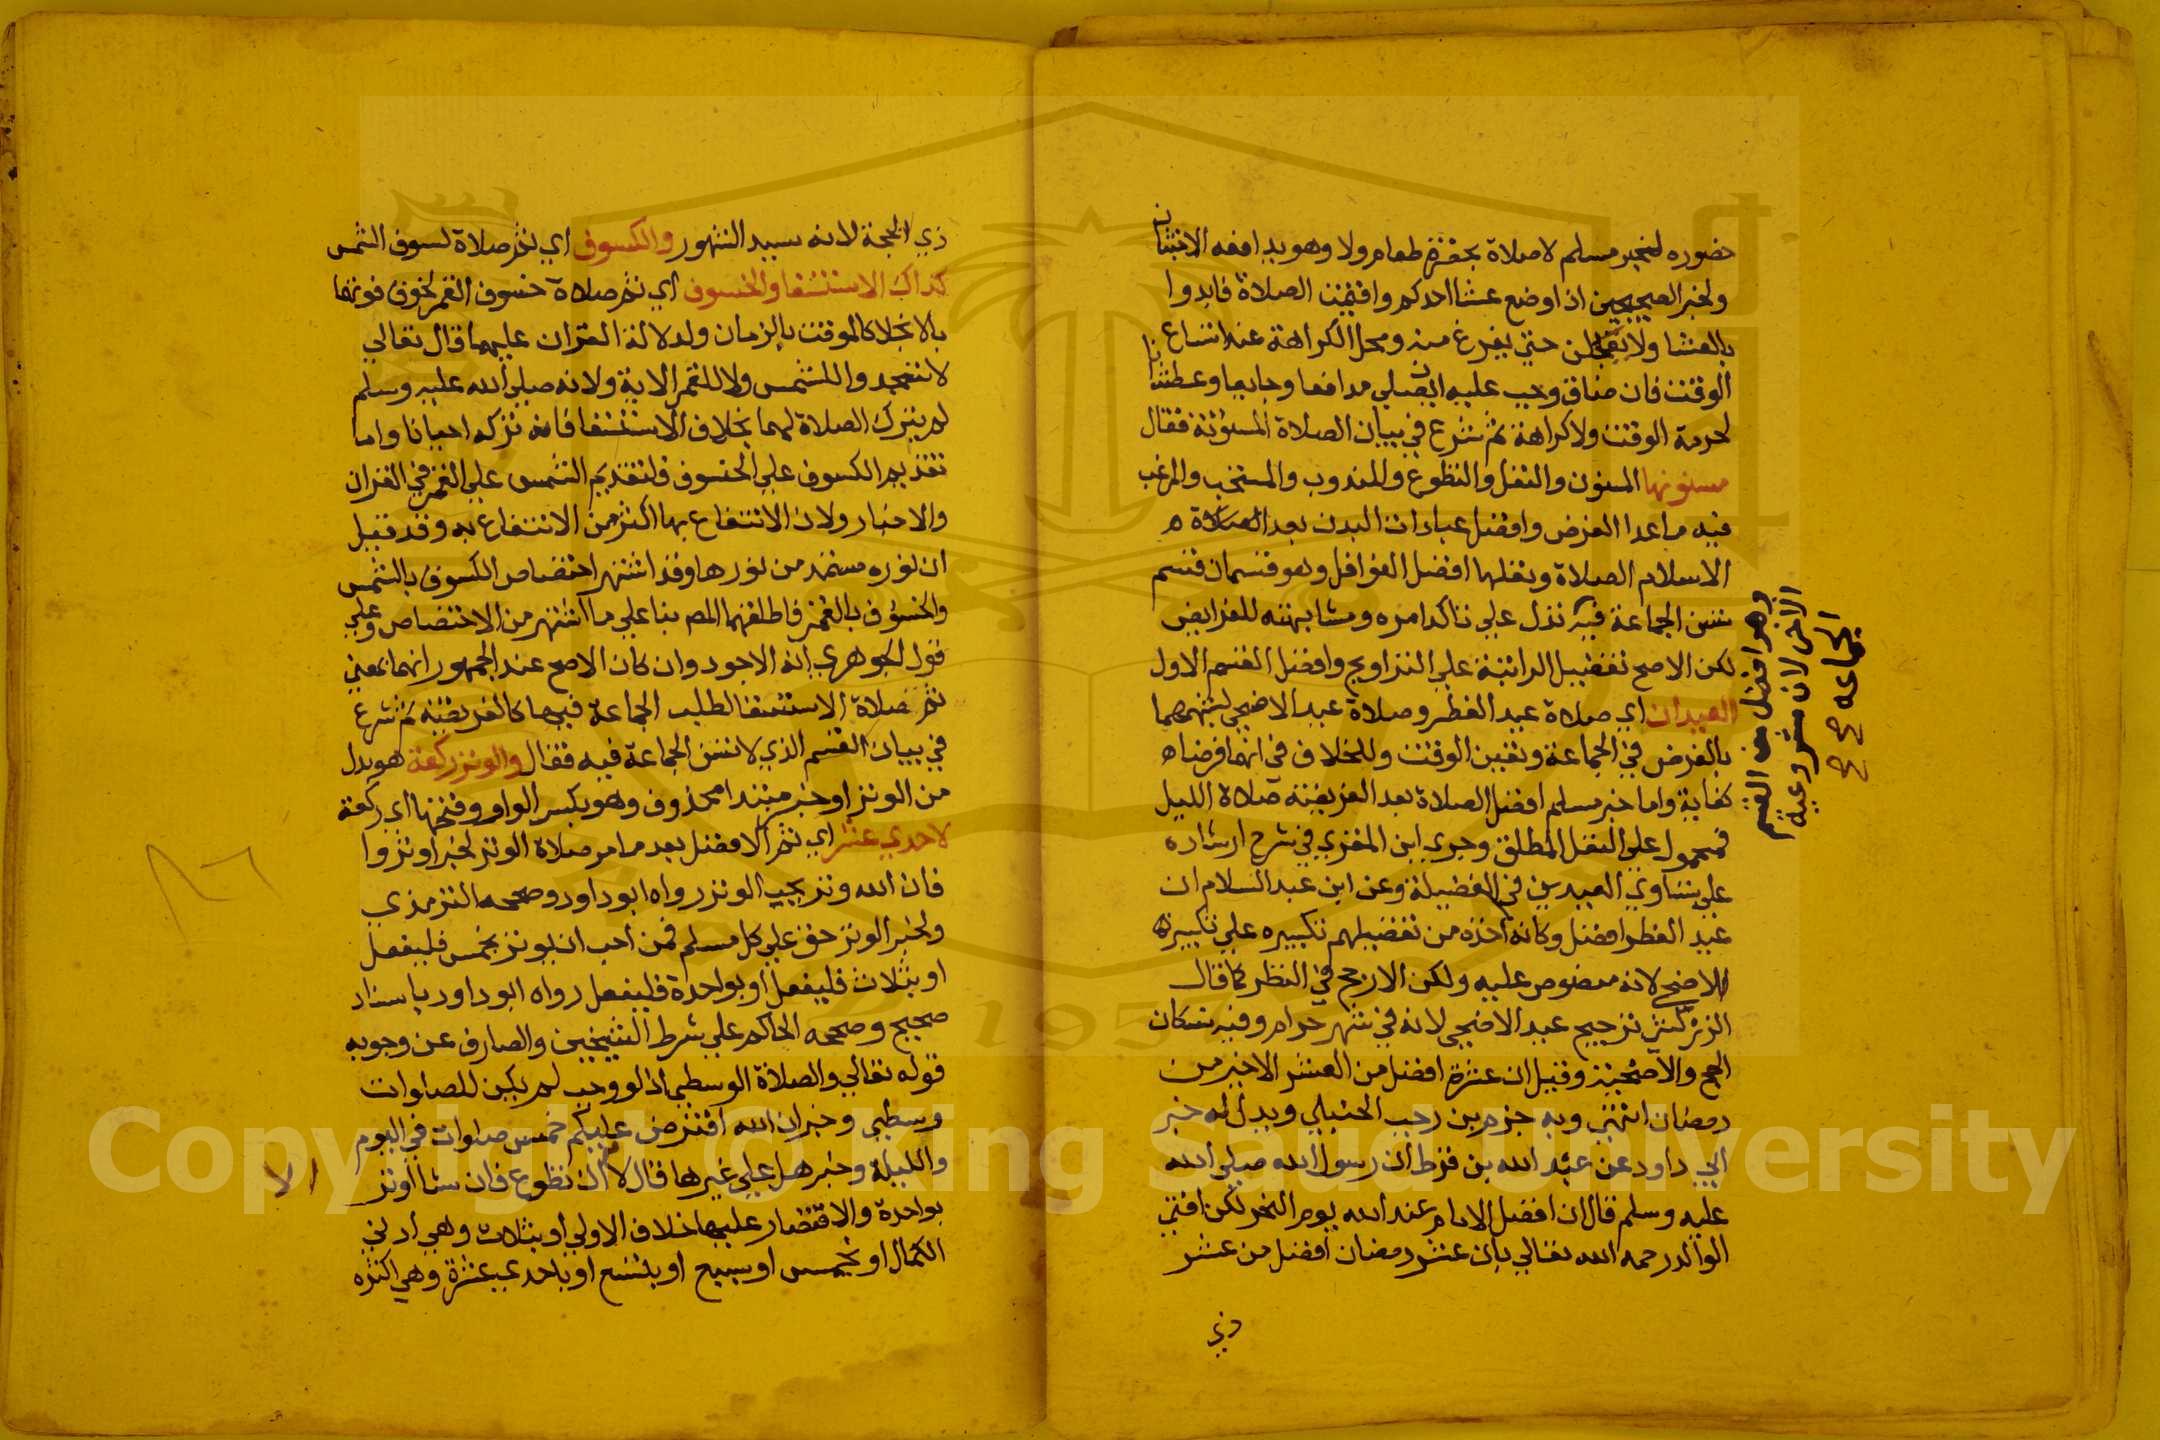 حضوره لخبر مسلم لا صلاة بحضرة طعام ولا وهو يدافعه الاخبثان
ولخبر الصحيحين اذا وضع عشا احدكم واقيمت الصلاة فابدوا
بالعشا ولا يعجلن حتي يفرغ منه ومحل الكراهة عند اتساع
الوقت فان ضاق وجب عليه ان يصلي مدافعا وجايعا وعطشانا
لحرمة الوقت ولا كراهة ثم شرع في بيان الصلاة المسنونة فقال
مسنونها المسنون والنفل والتطوع والمندوب والمستحب والمرغب
فيه ما عدا الفرض وافضل عبادات البدن بعد
الاسلام الصلاة ونفلها افضل النوافل وهو قسمان قسم
تسن الجماعة فيه تدل علي تاكد امره ومشابهته للفرايض
لكن الاصح تفضيل الراتبة علي التراويح وافضل القسم الاول
العيدان اي صلاة عيد الفطر وصلاة عيد الاضحي لشبههما
بالفرض في الجماعة وتعين الوقت وللخلاف في انهما فرضا
كفاية واما خبر مسلم افضل الصلاة بعد الفريضة صلاة الليل
فمحمول علي النفل المطلق وجري ابن المقري في شرح ارشاده
علي تساوي العيدين في الفضيلة وعن ابن عبد السلام ان
عيد الفطر افضل وكانه اخذه من تفضيلهم تكبيره علي تكبيرة
الاضحي لانه منصوص عليه ولكن الارجح في النظر كما قال
الزركشي ترجيح عيد الاضحي لانه في شهر حرام وفيه نسكان
الحج والاضحية وقيل ان عشره افضل من العشر الاخير من
رمضان انتهي وبه جزم بن رجب الحنبلي ويدل له خبر
ابي داود عن عبد الله بن قرط ان رسول الله صلي الله
عليه وسلم قال ان افضل الايام عند الله يوم النحر لكن افتي
الوالد رحمه الله تعالي بان عشر رمضان افضل من عشر
ذي
وهو افضل من القسم
الاخر لان مشروعية
الجماعة
ذي الحجة لانه سيد الشهور والكسوف اي ثم صلاة كسوف الشمس
كذاك الاستسقا والخسوف اي ثم صلاة خسوف القمر لخوف فوتها
بالانجلا كالموقت بالزمان ولدلالة القران عليهما قال تعالي
لا تسجدوا للشمس ولا للقمر الاية ولانه صلي الله عليه وسلم
لم يترك الصلاة لهما بخلاف الاستسقا فانه تركه احيانا واما
تقديم الكسوف علي الخسوف فلتقديم الشمس علي القمر في القران
والاخبار ولان الانتفاع بها اكثر من الانتفاع به وقد قيل
ان نوره مستمد من نورها وقد اشتهر اختصاص الكسوف بالشمس
والخسوف بالقمر فاطلقهما المصم بنا علي ما اشتهر من الاختصاص وعلي
قول الجوهري انه الاجود وان كان الاصح عند الجمهور انهما بمعني
ثم صلاة الاستسقا لطلب الجماعة فيها كالفريضة ثم شرع
في بيان القسم الذي لا تسن الجماعة فيه فقال والوتر ركعة هو بدل
من الوتر او خبر مبتدا محذوف وهو بكسر الواو وفتحها اي ركعة
لاحدي عشر اي ثم الافضل بعد ما مر صلاة الوتر لخبر اوتروا
فان الله وتر يحب الوتر رواه ابو داود وصححه الترمذي
ولخبر الوتر حق علي كل مسلم فمن احب ان يوتر بخمس فليفعل
او بثلاث فليفعل او بواحدة فليفعل رواه ابو داود باسناد
صحيح وصححه الحاكم علي شرط الشيخين والصارف عن وجوبه
قوله تعالي والصلاة الوسطي اذ لو وجب لم يكن للصلوات
وسطي وخبر ان الله افترض عليكم خمس صلوات في اليوم
والليلة وخبر هل علي غيرها قال لا الا ان تطوع فان شا اوتر
بواحدة والاقتصار عليها خلاف الاولي او بثلاث وهي ادني
الكمال او بخمس او بسبع او بتسع او باحدي عشرة وهي اكثره
الا
Copyright © King Saud University
1957